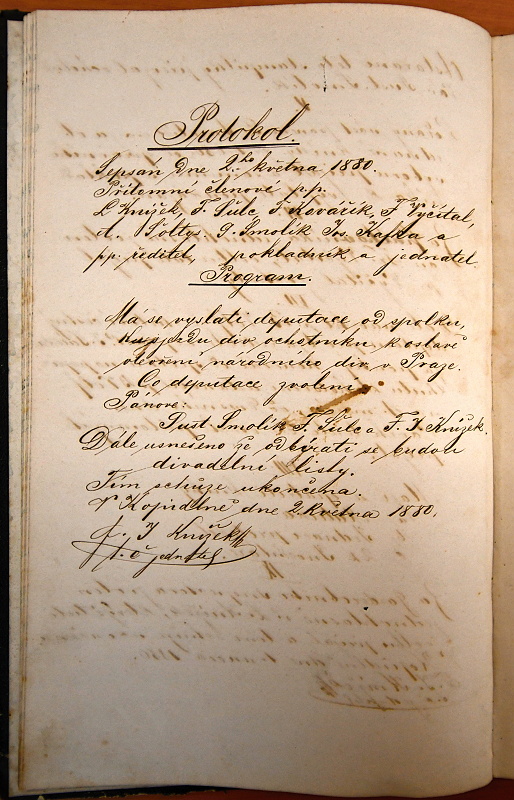 Protokol.
Sepsán dne 2ho května 1880.
Přítomní členové p.p.
L Knížek, F. Šulc F. Kovářík, F Vyčítal,
A. Šoltys, G. Smolík Jos. Kafka a
pp. ředitel, pokladník a jednatel.
Program.
Má se vyslati deputace od spolku,
ku sjezdu div. ochotníku k oslavě
otevření národního div. v Praze.
Co deputace zvoleni
Pánové:
Gust. Smolík F. Šulc a F. J. Knížek.
Dále usnešeno že odbírati se budou
divadelní listy.
Tím schůze ukončena.
V Kopidlně dne 2. května 1880.
F. J Knížek
t. č. jednatel